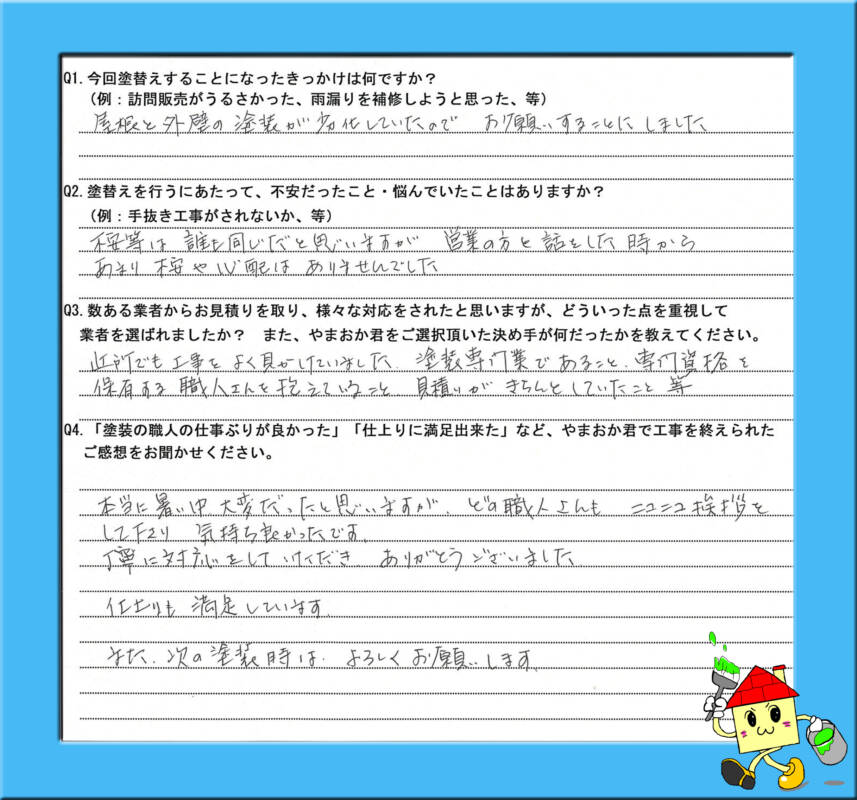 Q1. 今回塗替えすることになったきっかけは何ですか？
（例：訪問販売がうるさかった、雨漏りを補修しようと思った、等）
屋根と外壁の塗装が劣化していたので お願いすることにしました
Q2. 塗替えを行うにあたって、不安だったこと・悩んでいたことはありますか？
（例：手抜き工事がされないか、等）
不安等は 誰も同じだと思いますが 営業の方と話をした時から
あまり不安や心配は ありませんでした
Q3. 数ある業者からお見積りを取り、様々な対応をされたと思いますが、どういった点を重視して
業者を選ばれましたか？ また、やまおか君をご選択頂いた決め手が何だったかを教えてください。
近所でも工事をよく見かけていました、塗装専門業であること、専門資格を
保有する職人さんを抱えていること、見積りが きちんとしていたこと 等
Q4.「塗装の職人の仕事ぶりが良かった」「仕上りに満足出来た」など、やまおか君で工事を終えられた
ご感想をお聞かせください。
本当に暑い中 大変だったと思いますが、どの職人さんも ニコニコ挨拶を
してたり 気持ち良かったです。
丁寧に対応をして いただき ありがとうございました
仕上りも 満足しています。
また、次の塗装時は、よろしくお願いします。